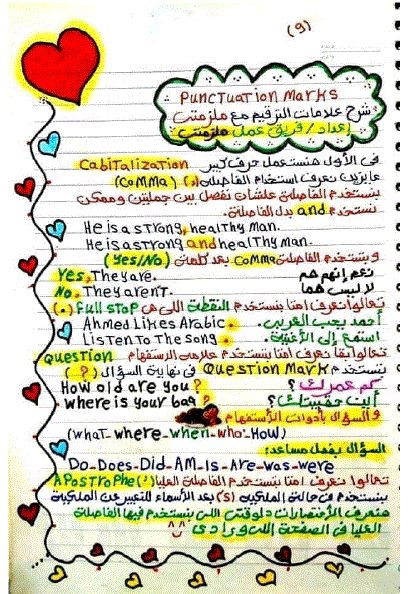 (9)
Punctuation Marks
شرح علامات الترقيم مع ملزمتى
إعداد/ فريق عمل ملزمتى
فى الأول هنستعمل حرف كبير Cabitalization
عايزين نعرف استخدام الفاصلة (,) (comma)
بنستخدم الفاصلة علشان نفصل بين جملتين وممكن
نستخدم and بدل الفاصلة.
He is a strong, healthy man.
He is a strong and healthy man.
وبنستخدم الفاصلة comma بعد كلمتى (Yes/No)
Yes, They are. نعم إنهم هم
No, They aren't. لا ليس هما
تعالوا نعرف امتا بنستخدم النقطة اللى هى Full stop (.)
Ahmed Likes Arabic. أحمد يحب العربى.
Listen To The song. استمع إلى الأغنية.
تعالوا بقا نعرف امتا بنستخدم علامة الاستفهام Question
بنستخدم Question Mark فى نهاية السؤال (?)
How old are you? كم عمرك؟
where is your bag? أين حقيبتك؟
والسؤال بأدوات الاستفهام
(what-where-when-who-How)
السؤال بفعل مساعد:
Do-Does-Did-AM-Is-Are-was-were
تعالوا نعرف امتا بنستخدم الفاصلة العليا (') Apostrophe
بنستخدم فى حالة الملكية (s) بعد الأسماء للتعبير عن الملكية
هنعرف الأختصارات دلوقتى اللى بنستخدم فيها الفاصلة
العليا فى الصفحة اللى ورا دى ^^